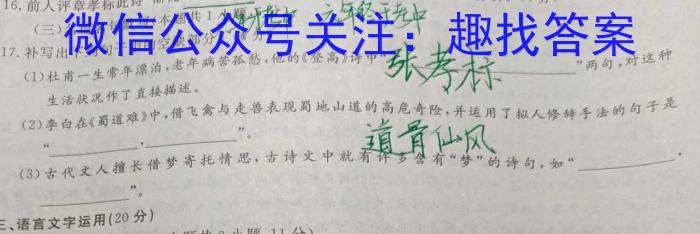 16.前人评章孝标此诗
(三)
本题共1小题
微信公众号关注:趣找答案
17.补写出
(1)杜甫一生常年漂泊,老年病苦孤愁,他的《登高》诗中
张孝标
”两句,对这种
生活状况作了直接描述。
(2)李白在《蜀道难》中,借飞禽与走兽表现蜀地山道的高危奇险,并运用了拟人修辞手法的句子是
“____________,____________”。
道骨仙风
(3)古代文人擅长借梦寄托情思,古诗文中就有许多含有“梦”的诗句,如“____________,
____________”。
三、语言文字运用(20分)